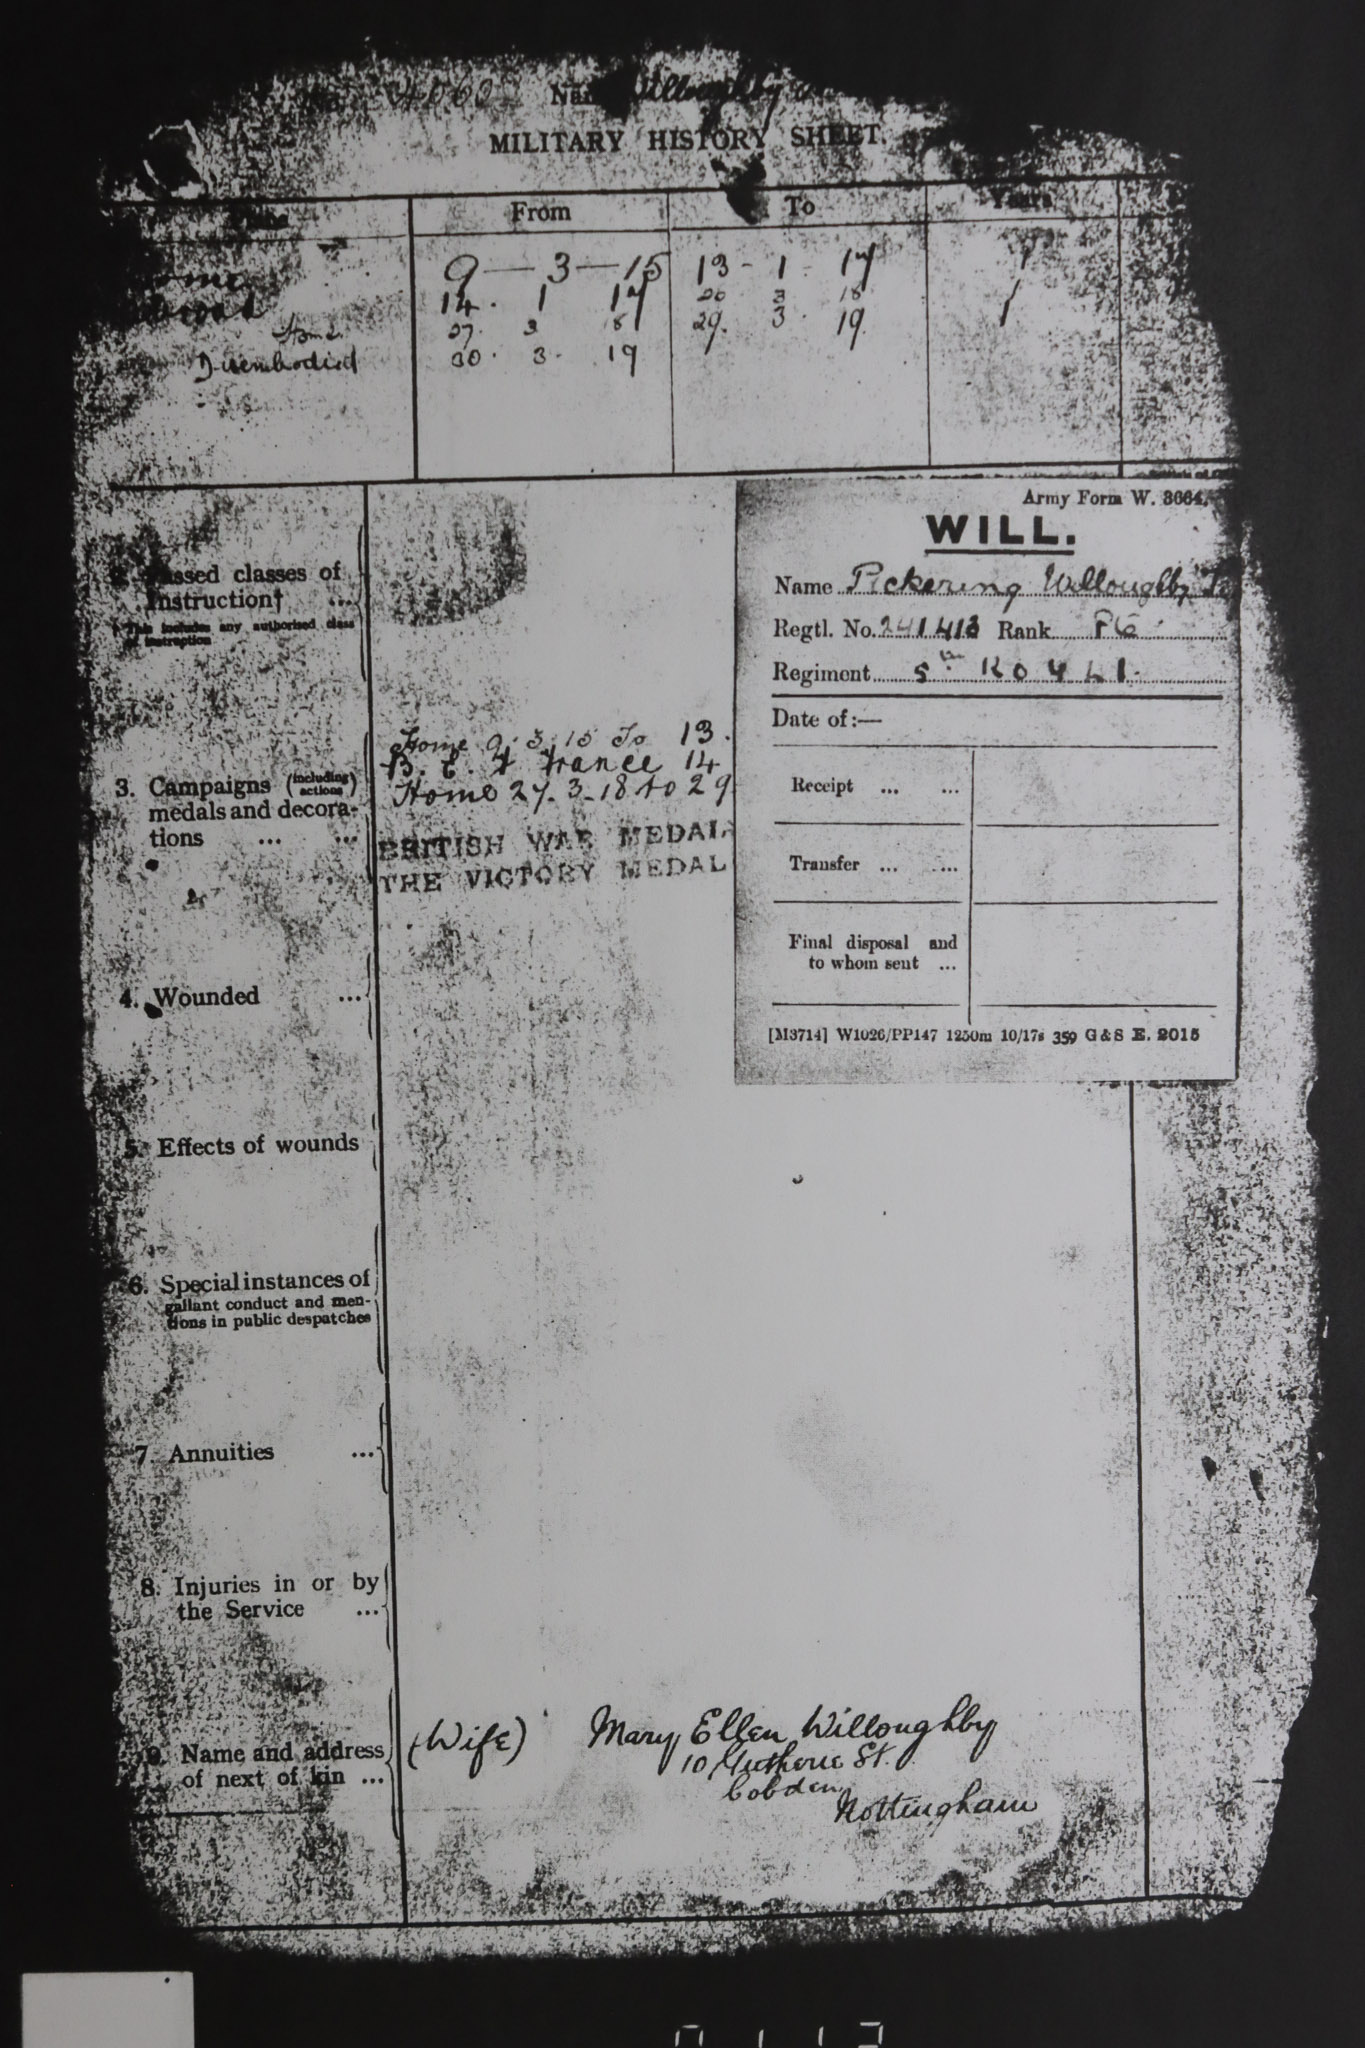 4060 Willoughby
MILITARY HISTORY SHEET.
From To Years
9 — 3 — 15 13 - 1 - 17 1
14 . 1 17 26 3 18 1
Home 27. 3 18 29. 3. 19
Disembodied 30. 3. 19
Army Form W. 3664.
WILL.
Name Pickering Willoughby
Regtl. No. 241413 Rank Pte
Regiment 5th K O Y L I.
Date of:—
Receipt ... ...
Transfer ... ...
Final disposal and
to whom sent ...
[M3714] W1026/PP147 1250m 10/17s 359 G & S E. 2015
2. Passed classes of
Instruction† ...
† This includes any authorised class
of instruction
3. Campaigns (including
actions)
medals and decora-
tions ... ...
Home 9. 3. 15 To 13.
B. E. F France 14
Home 27. 3. 18 to 29
BRITISH WAR MEDAL
THE VICTORY MEDAL
4. Wounded ...
5. Effects of wounds
6. Special instances of
gallant conduct and men-
tions in public despatches
7. Annuities ...
8. Injuries in or by
the Service ...
9. Name and address
of next of kin ...
(Wife) Mary Ellen Willoughby
10 Gutherie St.
Cobden
Nottingham